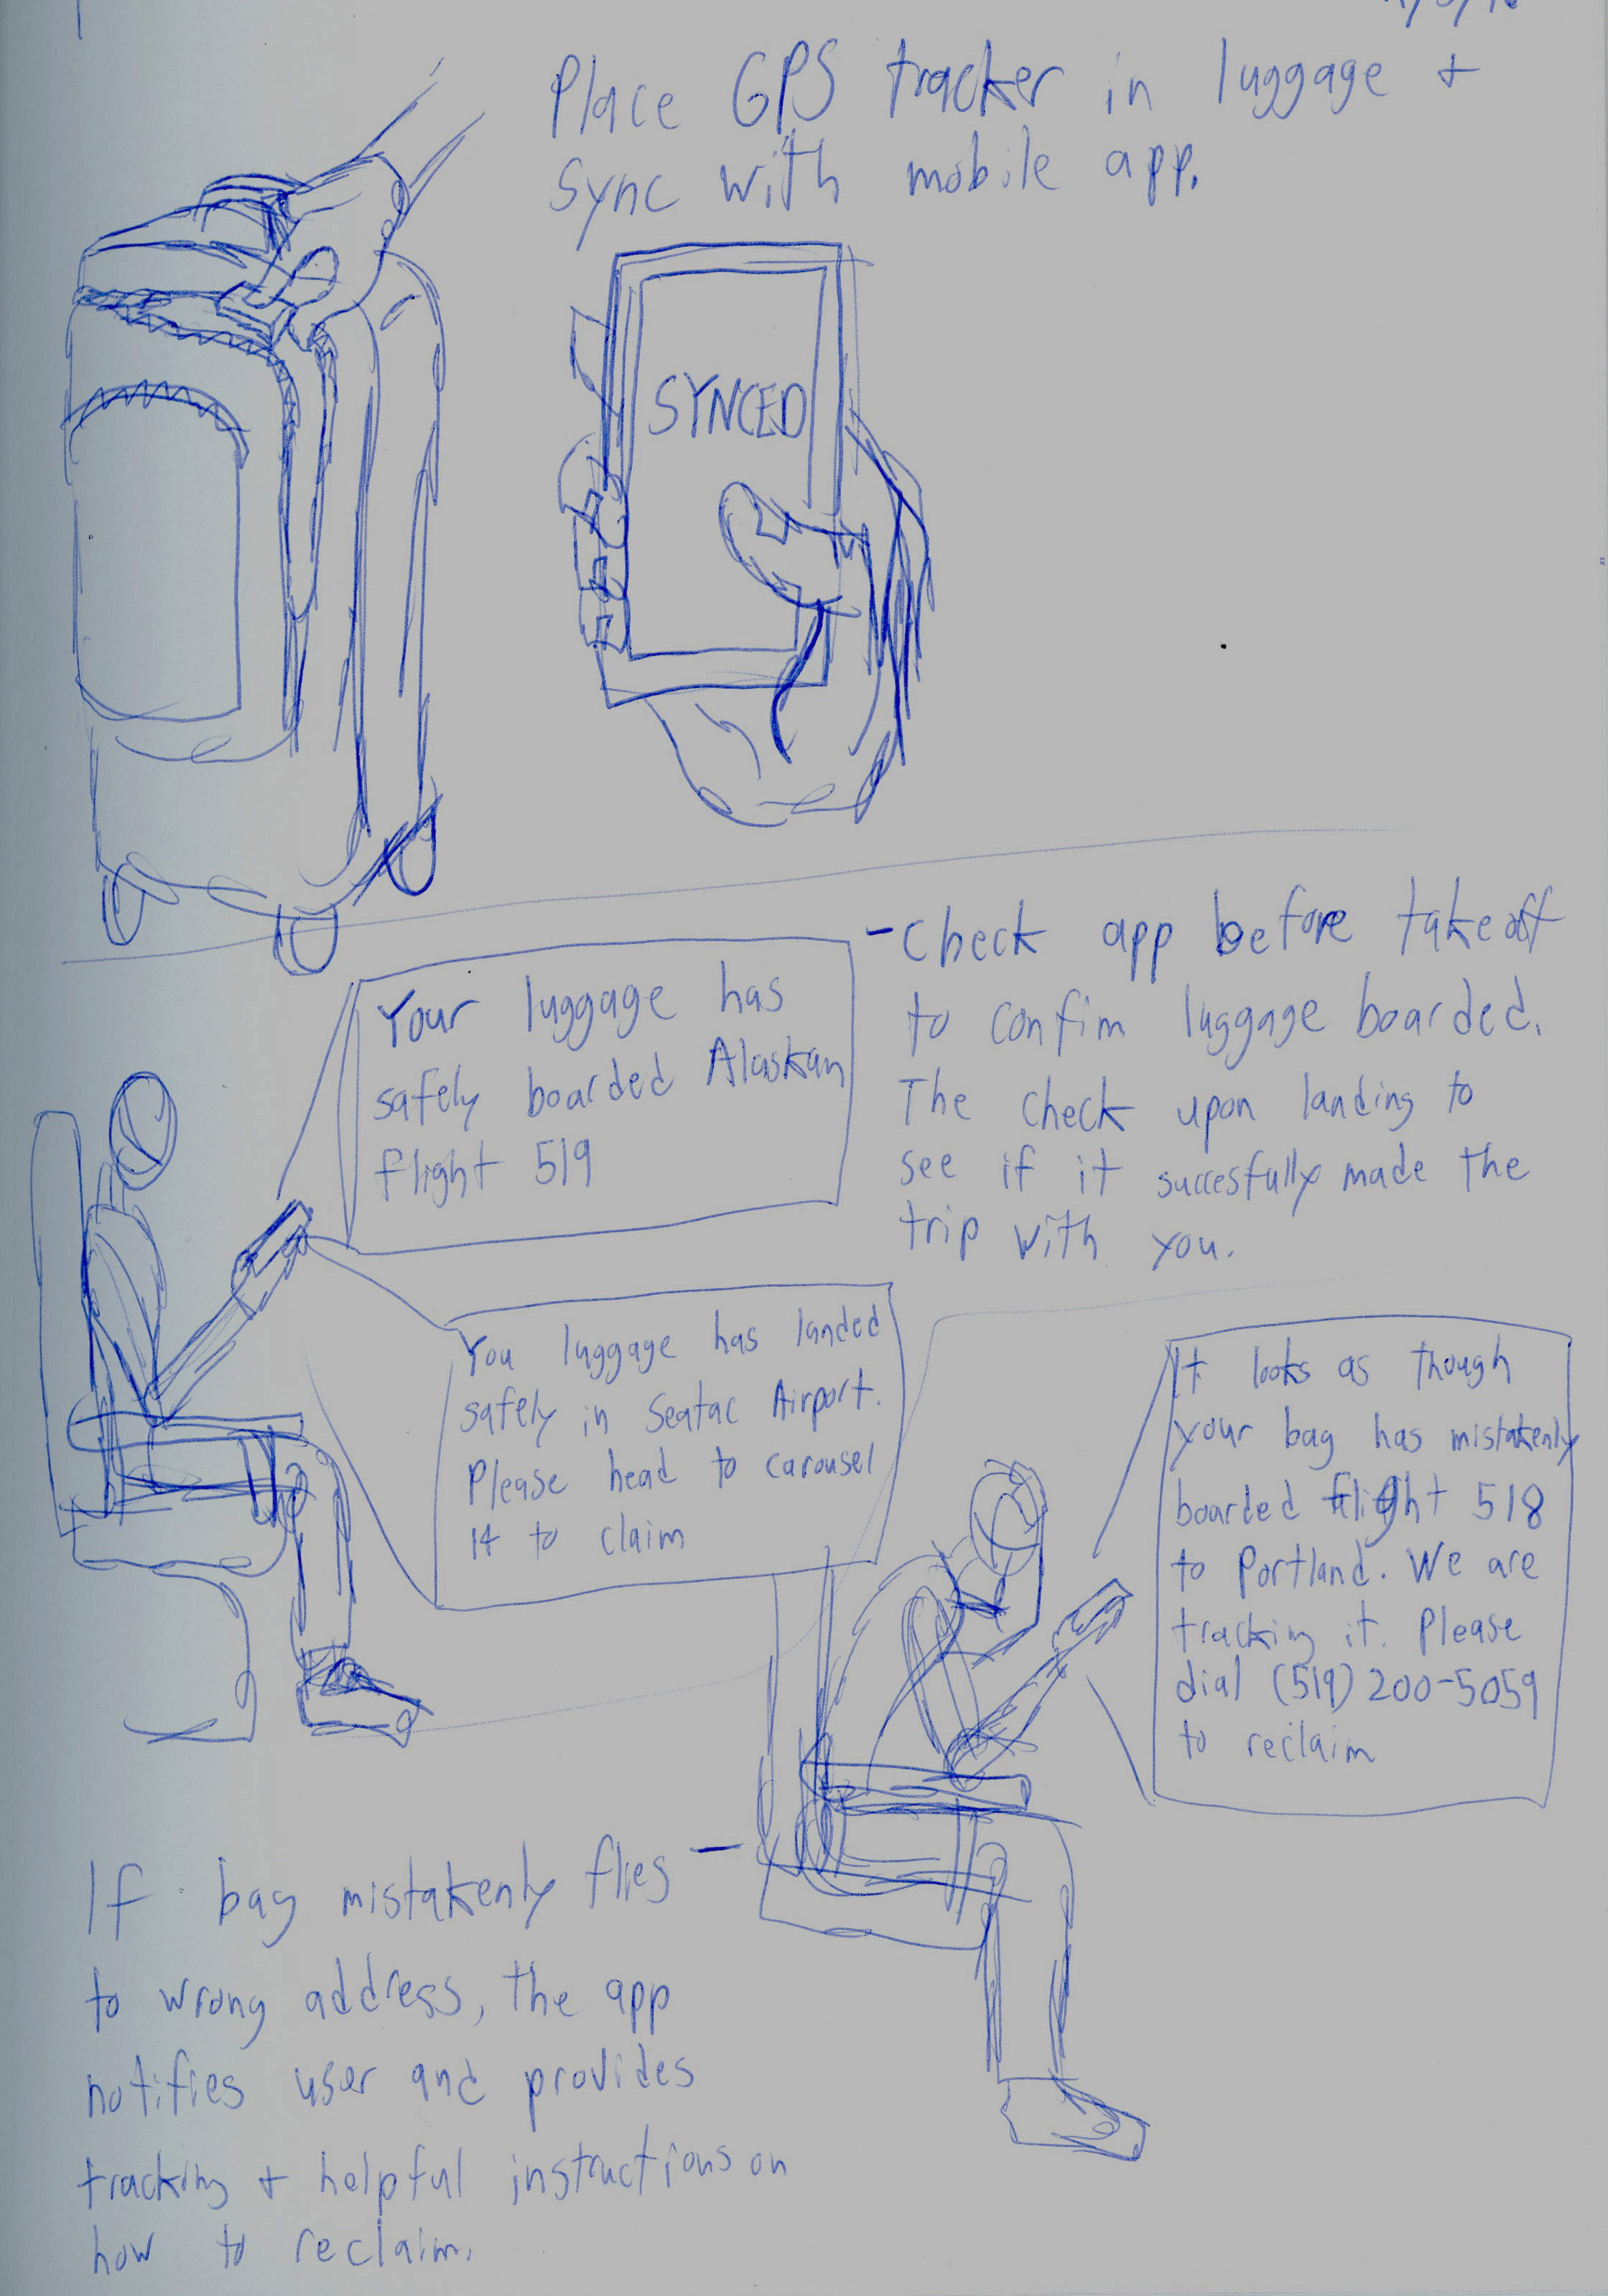 Place GPS tracker in luggage +
sync with mobile app.
SYNCED
- Check app before takeoff
to confim luggage boarded.
The check upon landing to
see if it succesfully made the
trip with you.
Your luggage has
safely boarded Alaskan
flight 519
You luggage has landed
safely in Seatac Airport.
Please head to carousel
14 to claim
It looks as though
your bag has mistakenly
boarded flight 518
to Portland. We are
tracking it. Please
dial (519) 200-5059
to reclaim
If bag mistakenly flies -
to wrong address, the app
notifies user and provides
tracking + helpful instructions on
how to reclaim.